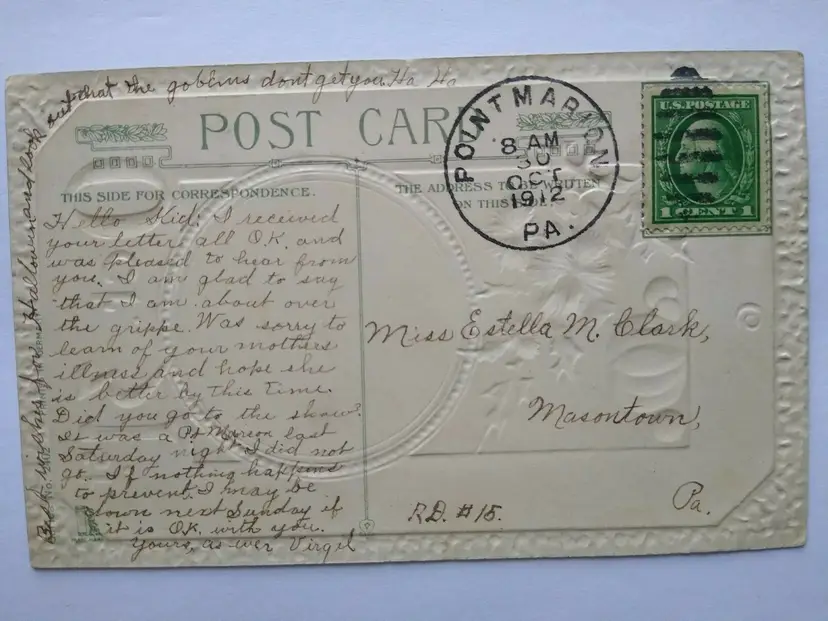 Best wishes for Halloween and look
out that the goblins dont get you Ha Ha
POST CARD
THIS SIDE FOR CORRESPONDENCE.
THE ADDRESS TO BE WRITTEN
ON THIS
POINT MARION
8 AM
30
OCT
1912
PA.
U.S. POSTAGE
1 CENT 1
Hello Kid: I received
your letter all O.K. and
was pleased to hear from
you. I am glad to say
that I am about over
the grippe. Was sorry to
learn of your mothers
illness and hope she
is better by this time.
Did you go to the show?
It was a Pt Marion last
Saturday night I did not
go. If nothing happens
to prevent I may be
down next Sunday if
it is O.K. with you.
Yours, as ever Virgel
Miss Estella M. Clark,
Masontown,
R.D. #15.
Pa.